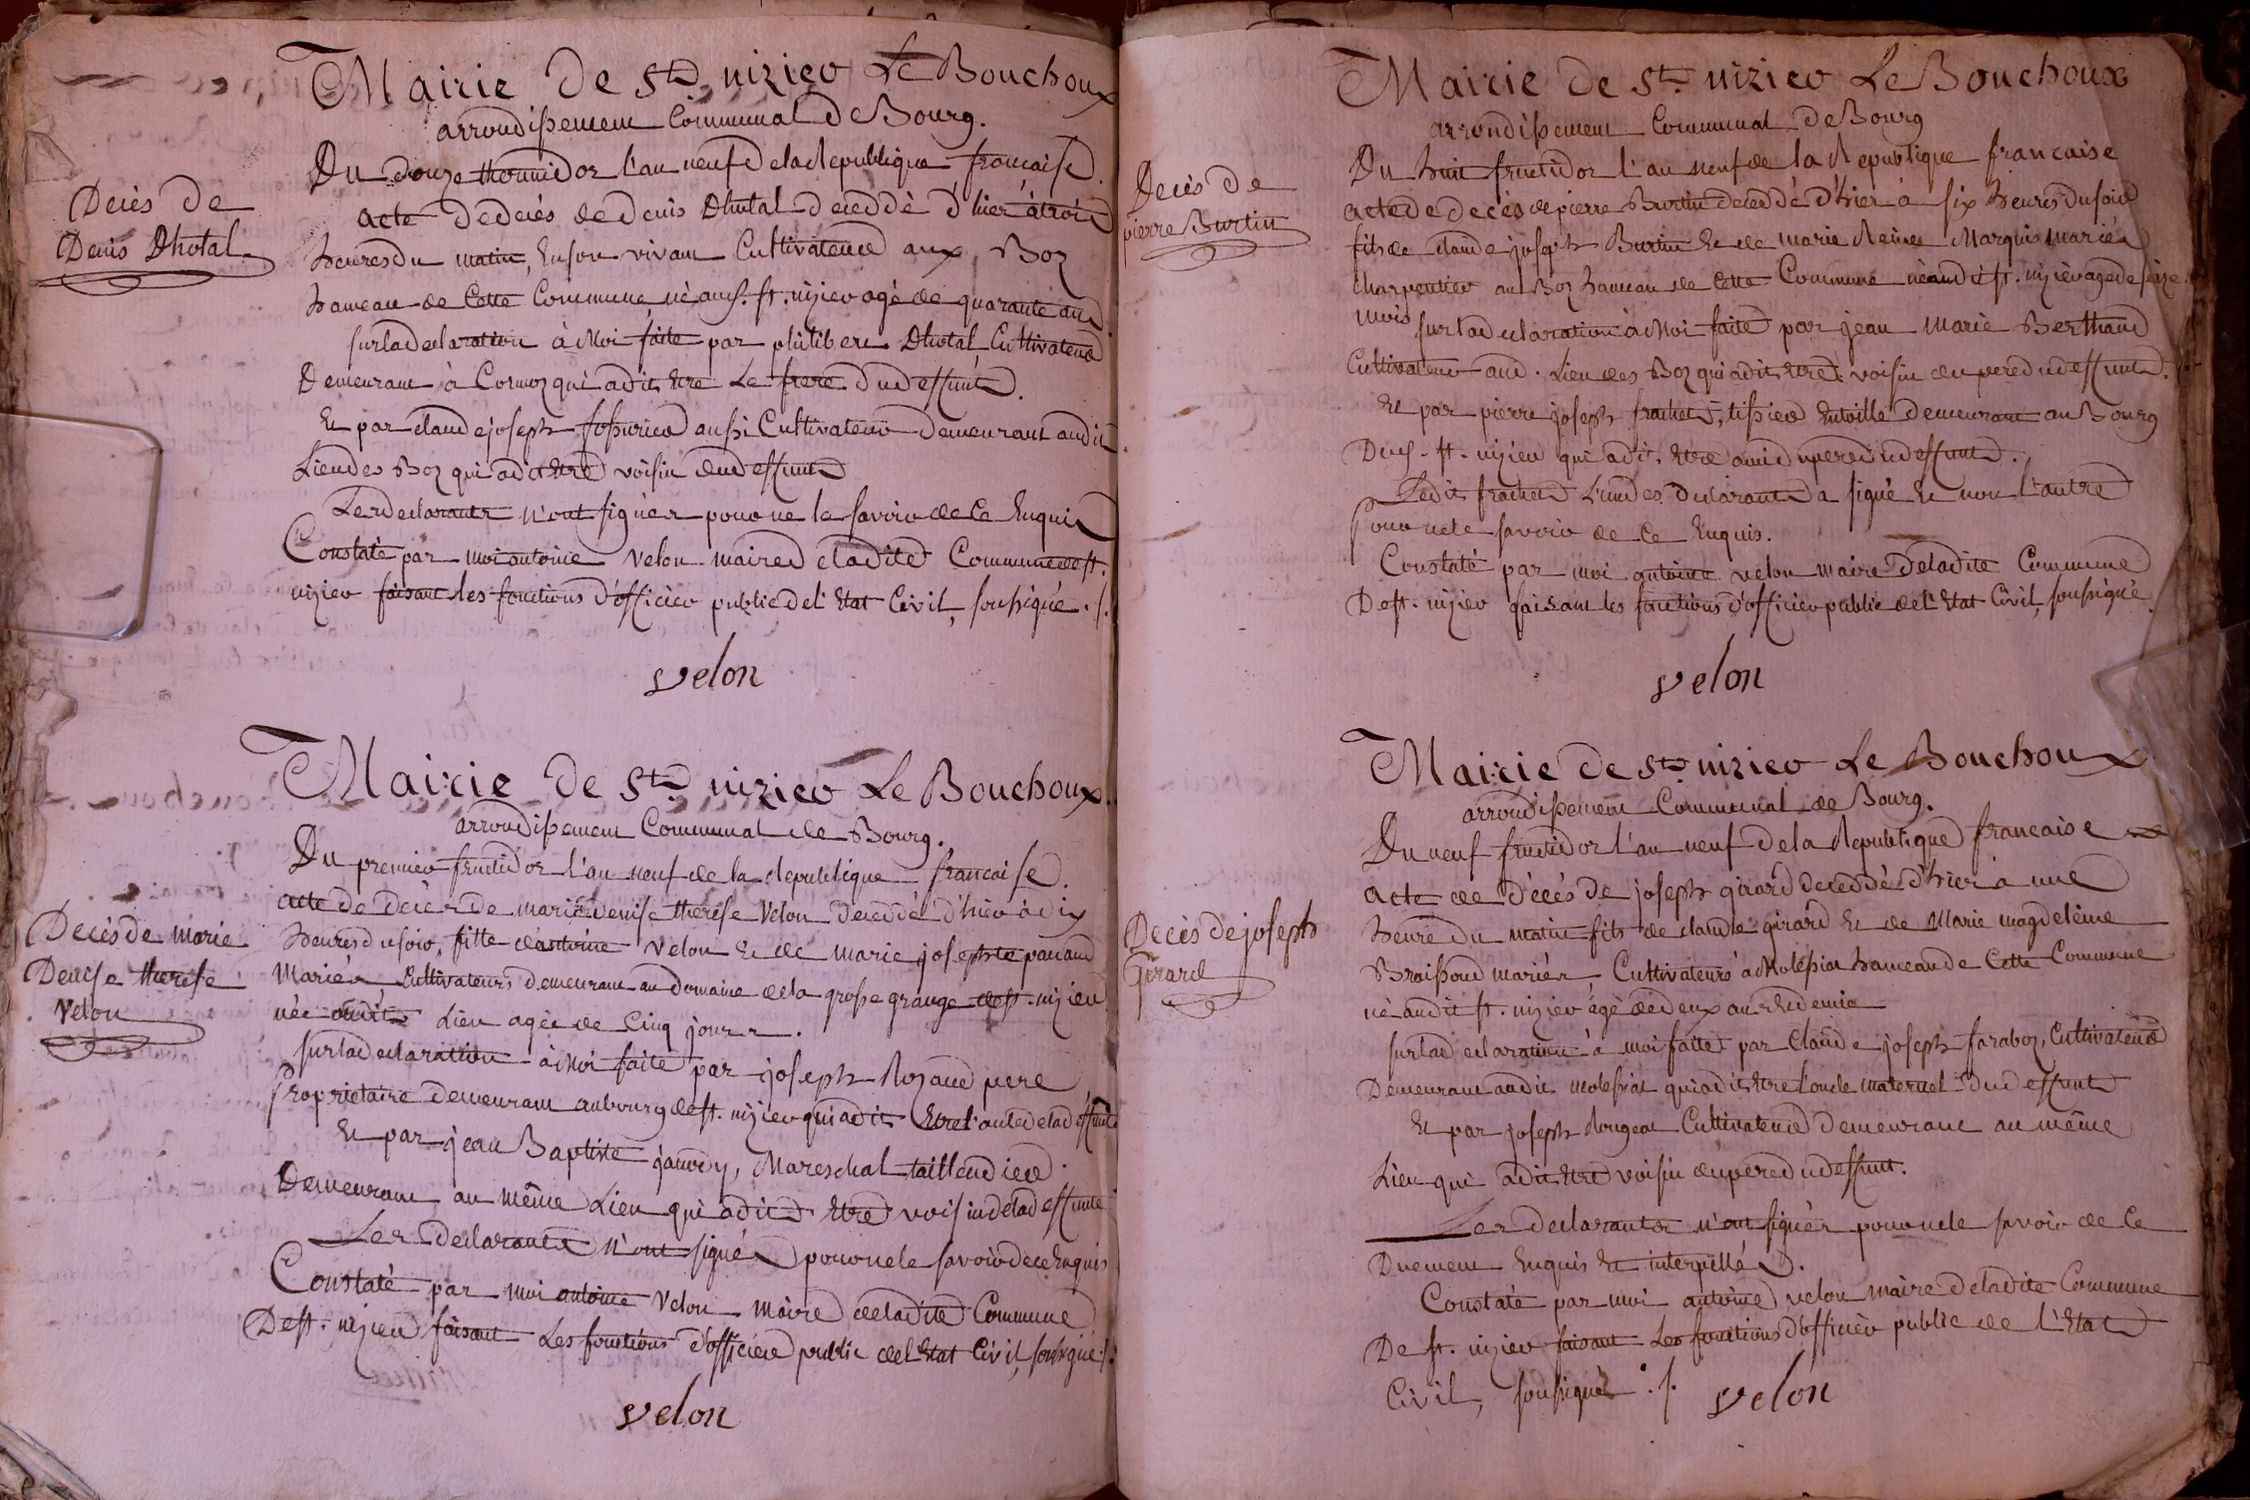 Mairie de St. nizier Le Bouchoux
arrondissement Communal de Bourg.
Décès de
Denis Dhotal
Du douze thermidor l'an neuf de la Republique francaise.
acte de decés de denis Dhotal decedé d'hier à trois
heures du matin, En son vivant Cultivateur aux Boz
hameau de Cette Commune, né aud. st. nizier agé de quarante ans
sur la declaration à Moi faite par philibert Dhotal Cultivateur
Demeurant à Cormoz qui a dit Etre Le frere du deffunt.
Et par claude joseph fossurier aussi Cultivateur demeurant audit
Lieu des Boz qui a dit Etre voisin du deffunt
Les declarants n'ont signés pour ne le savoir de Ce Enquis
Constaté par moi antoine velon maire de ladite Commune de st.
nizier faisant les fonctions d'officier public del'Etat Civil, soussigné ./.
velon
Mairie de St. nizier Le Bouchoux.
arrondissement Communal de Bourg.
Décès de marie
Denise therese
Velon
Du premier fructidor l'an neuf de la Republique francaise.
acte de decès de marie denise therese Velon decedée d'hier à dix
heures du soir, fille d'antoine velon Et de marie josephte panand
Mariés Cultivateurs demeurant au domaine de la grosse grange de st. nizier
née audit Lieu agée de Cinq jours.
sur la declaration à Moi faite par joseph Rozand pere
Proprietaire demeurant au bourg de st. nizier qui a dit Etre de la deffunte
Et par jean Baptiste jauvdy, Mareschal taillendier.
Demeurant au même Lieu qui a dit Etre voisin de la deffunte
Les declarants n'ont signés pour ne le savoir de ce Enquis
Constaté par moi antoine Velon maire de ladite Commune
De st. nizier faisant Les fonctions d'officier public de l'Etat Civil, soussigné ./.
velon
Mairie de St. nizier Le Bouchoux
arrondissement Communal de Bourg
Decès de
pierre Burtin
Du huit fructidor l'an neuf de la Republique francaise
acte de decès de pierre Burtin decedé d'hier à six heures du soir
fils de claude joseph Burtin Et de marie Reine Marquis mariés
charpentier au Boz hameau de Cette Commune né audit st. nizier agé de seize
mois
sur la declaration à Moi faite par jean Marie Berthaud
Cultivateur aud. Lieu des Boz qui a dit Etre voisin du pere du deffunt.
Et par pierre joseph frachet, tissier En toille demeurant au Bourg
Dud. st. nizier qui a dit Etre ami du pere du deffunt.
Ledit frachet L'un des declarants a signé Et non l'autre
Pour ne le savoir de Ce Enquis.
Constaté par moi antoine velon maire de ladite Commune
De st. nizier faisant les fonctions d'officier public de l'Etat Civil, soussigné
velon
Mairie de St. nizier Le Bouchoux
arrondissement Communal de Bourg.
Decès de joseph
Girard
Du neuf fructidor l'an neuf de la Republique francaise
acte de décès de joseph girard decedé d'hier à une
heure du matin fils de claude girard Et de Marie magdeleine
Braissoud mariés Cultivateurs à Molesiat hameau de Cette Commune
né audit st. nizier âgé de deux ans Et demie
sur la declaration à moi faite par Claude joseph faraboz, Cultivateur
Demeurant audit molessiat qui a dit Etre l'oncle maternel du deffunt
Et par joseph Rongeat Cultivateur demeurant au même
Lieu qui a dit Etre voisin du pere du deffunt.
Les declarants n'ont signés pour ne le savoir de Ce
Duement Enquis Et interpellés.
Constaté par moi antoine velon maire de ladite Commune
De st. nizier faisant Les fonctions d'officier public de l'Etat
Civil, soussigné ./.
velon